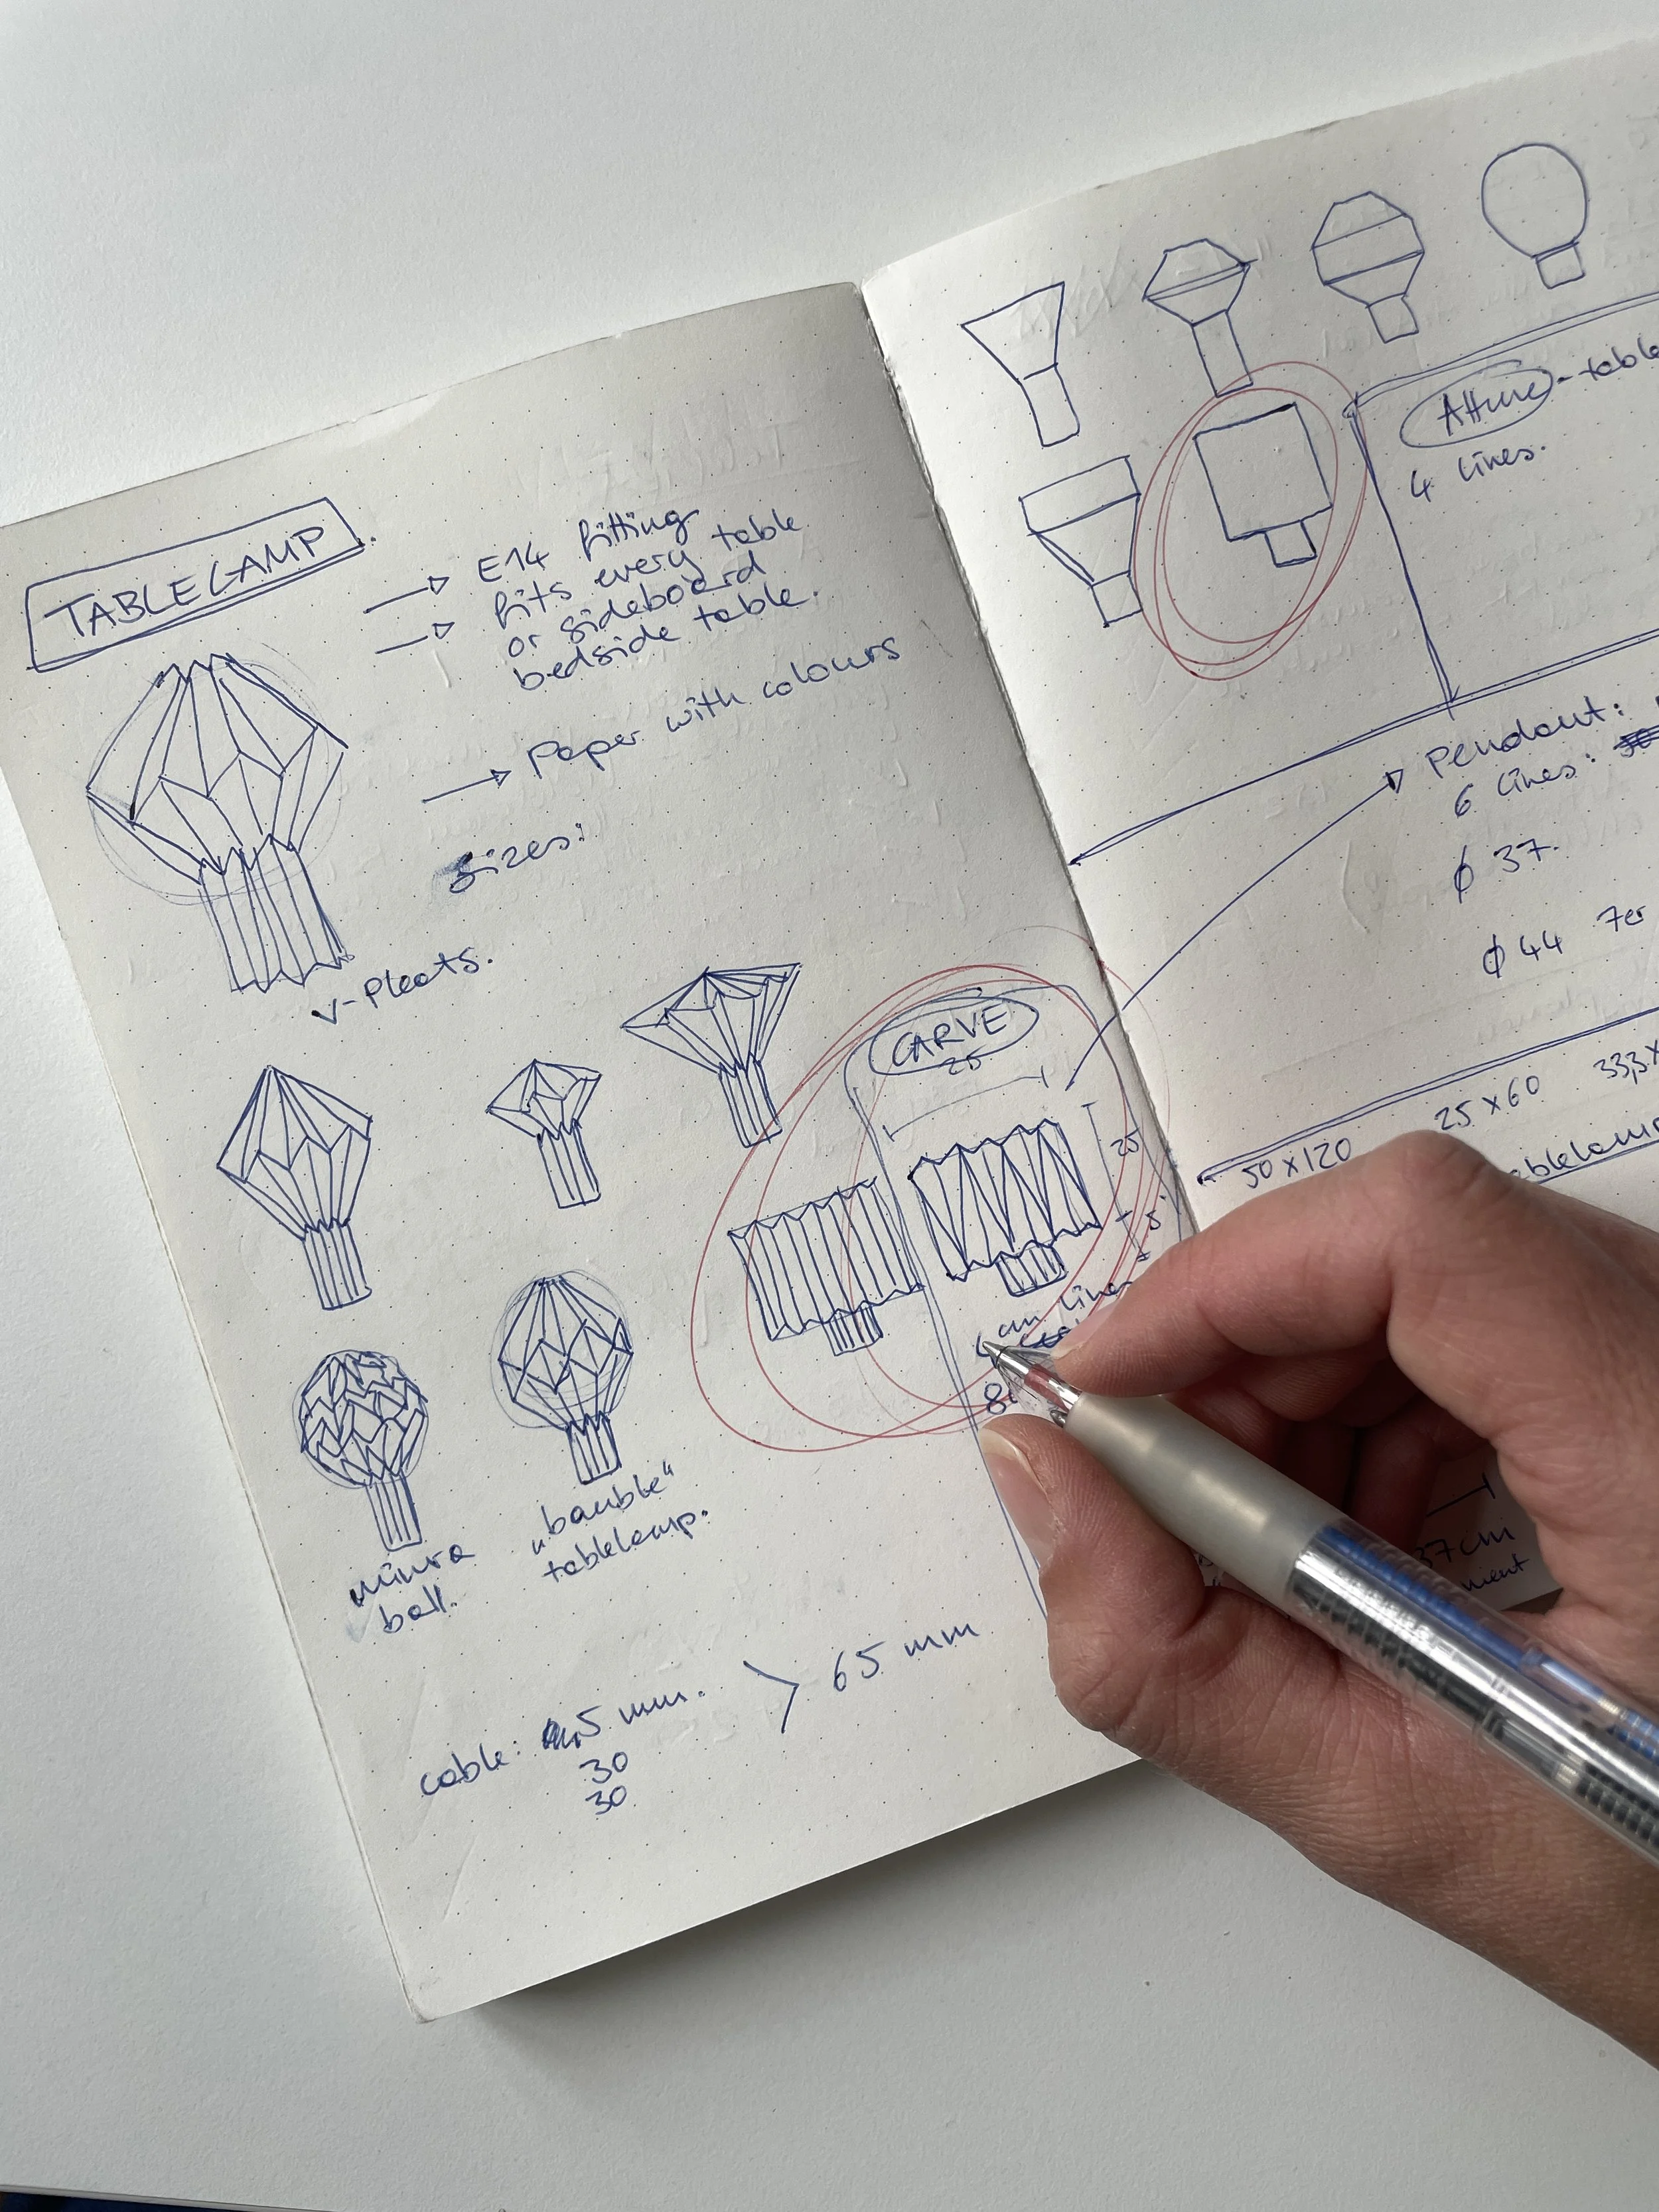 TABLELAMP.
E14 fitting
fits every table
or sideboard
bedside table.
Paper with colours
sizes:
V-Pleats.
CARVE
25
25
5
cm
miura
ball.
"bauble"
tablelamp.
cable: 5 mm.
30
30
65 mm
- table
4 lines.
Pendant:
6 lines:
ϕ 37.
ϕ 44 7er
50 x 120
25 x 60
33,3 x
tablelamp
37 cm